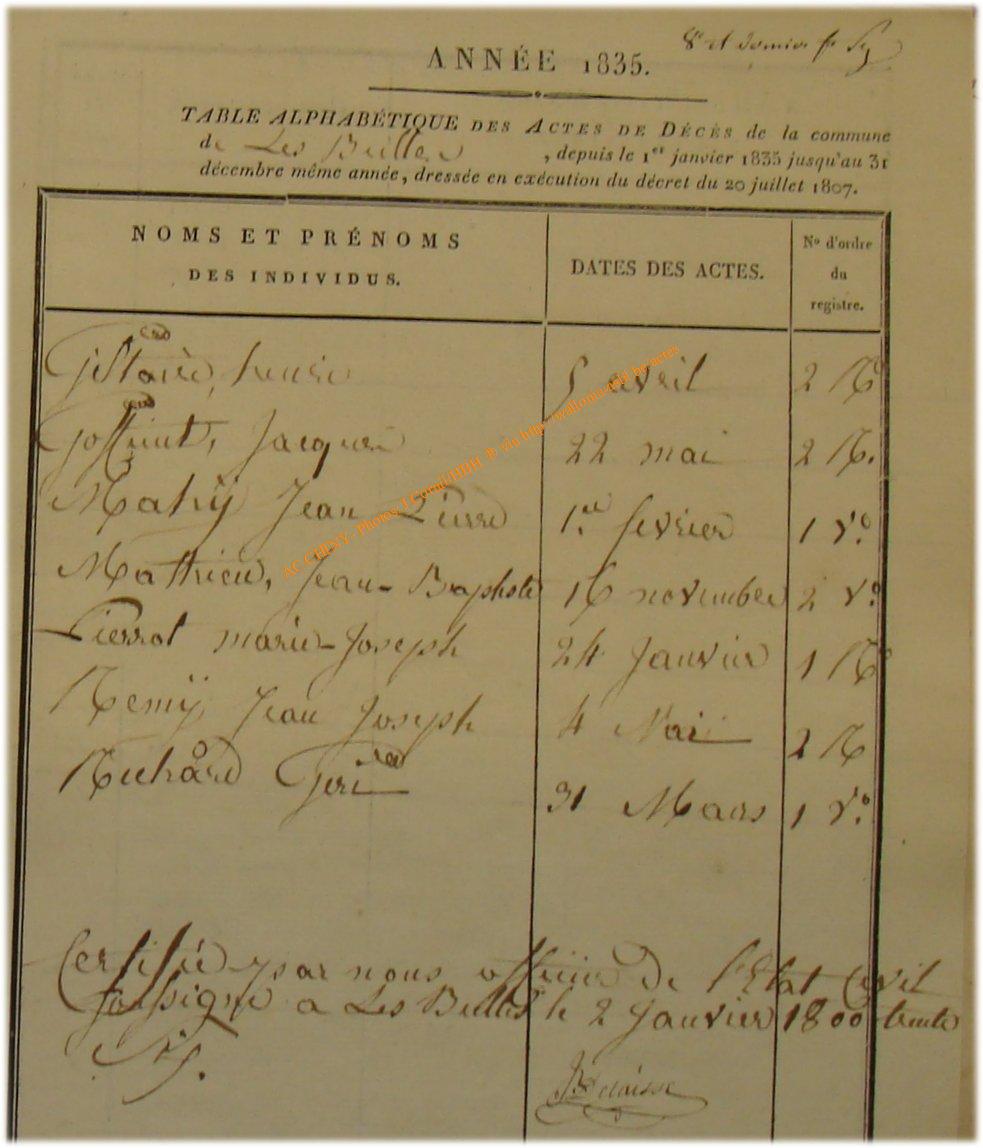 8e et dernier
ANNÉE 1835.
TABLE ALPHABÉTIQUE DES ACTES DE DÉCÈS de la commune
de Les Bulles, depuis le 1er janvier 1835 jusqu'au 31
décembre même année, dressée en exécution du décret du 20 juillet 1807.
NOMS ET PRÉNOMS
DES INDIVIDUS.
DATES DES ACTES.
No d'ordre
du
registre.
henri 5 avril 2 Ro
Goffinet, Jacques 22 mai 2 Ro.
Mahy Jean Pierre 1er fevrier 1 Vo.
Mathieu, Jean-Baptiste 16 novembre 2 Vo.
Pierrot marie-Joseph 24 Janvier 1 Ro
Remÿ Jean Joseph 4 Mai 2 Ro
Richard 31 Mars 1 Vo.
Certifié par nous officier de l'Etat Civil
soussigné a Les Bulles le 2 Janvier 1800 trente
AC CHINY - Photos J Cornil/HRH ® via http://wallonia-asbl.be-actes